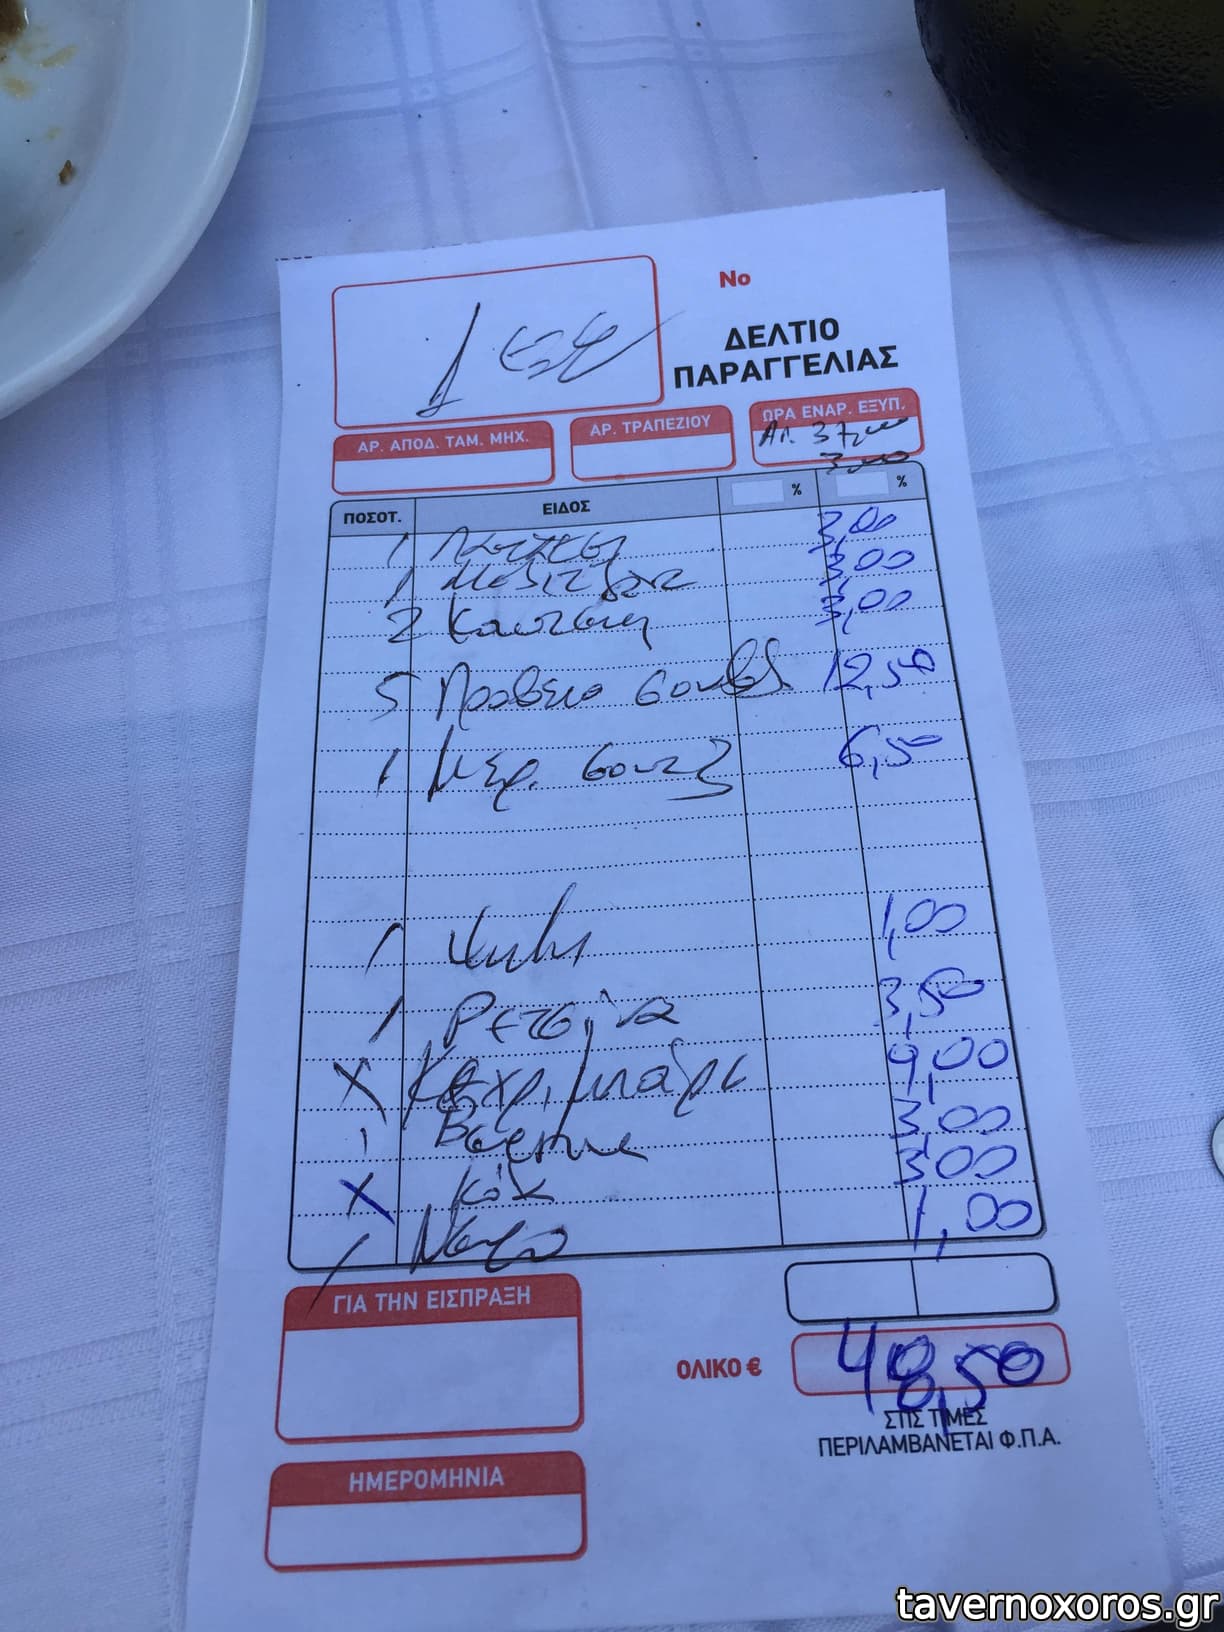 No
ΔΕΛΤΙΟ
ΠΑΡΑΓΓΕΛΙΑΣ
1 εξω
ΑΡ. ΑΠΟΔ. ΤΑΜ. ΜΗΧ.
ΑΡ. ΤΡΑΠΕΖΙΟΥ
ΩΡΑ ΕΝΑΡ. ΕΞΥΠ.
ΠΟΣΟΤ. ΕΙΔΟΣ % %
1 3,00
1 3,00
2 3,00
5 Προβειο σουβλ 12,50
1 Μερ. σουτζ 6,50
1 Ψωμι 1,00
1 Ρετσίνα 3,50
Χ Κεχριμπάρι 9,00
1 3,00
Χ Κόκ 3,00
1 Νερο 1,00
ΓΙΑ ΤΗΝ ΕΙΣΠΡΑΞΗ
ΟΛΙΚΟ € 48,50
ΣΤΙΣ ΤΙΜΕΣ
ΠΕΡΙΛΑΜΒΑΝΕΤΑΙ Φ.Π.Α.
ΗΜΕΡΟΜΗΝΙΑ
tavernoxoros.gr